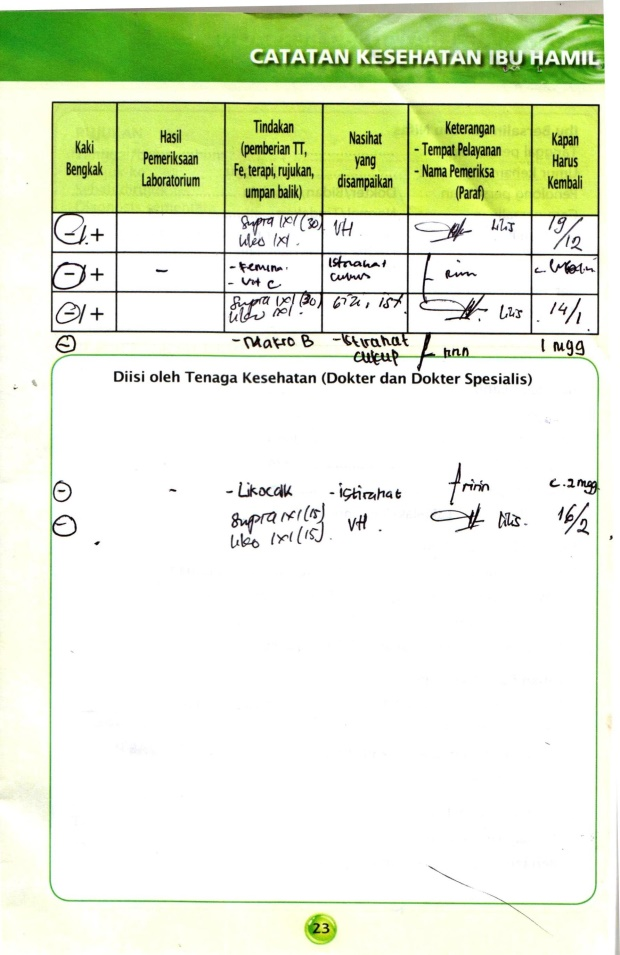 CATATAN KESEHATAN IBU HAMIL
Kaki Bengkak
Hasil Pemeriksaan Laboratorium
Tindakan (pemberian TT, Fe, terapi, rujukan, umpan balik)
Nasihat yang disampaikan
Keterangan - Tempat Pelayanan - Nama Pemeriksa (Paraf)
Kapan Harus Kembali
- / + Supra 1x1 (30) VH Lilis 19/12
1x1
- / + - - Femina. Istirahat ririn
- Vit C
- / + Supra 1x1 (30) Lilis 14/1
- - Makro B - Istirahat cukup ririn 1 mgg
Diisi oleh Tenaga Kesehatan (Dokter dan Dokter Spesialis)
- - - Likocalk - istirahat ririn c. 2 mgg
- Supra 1x1 (15) VH. Lilis. 16/2
1x1 (15)
23